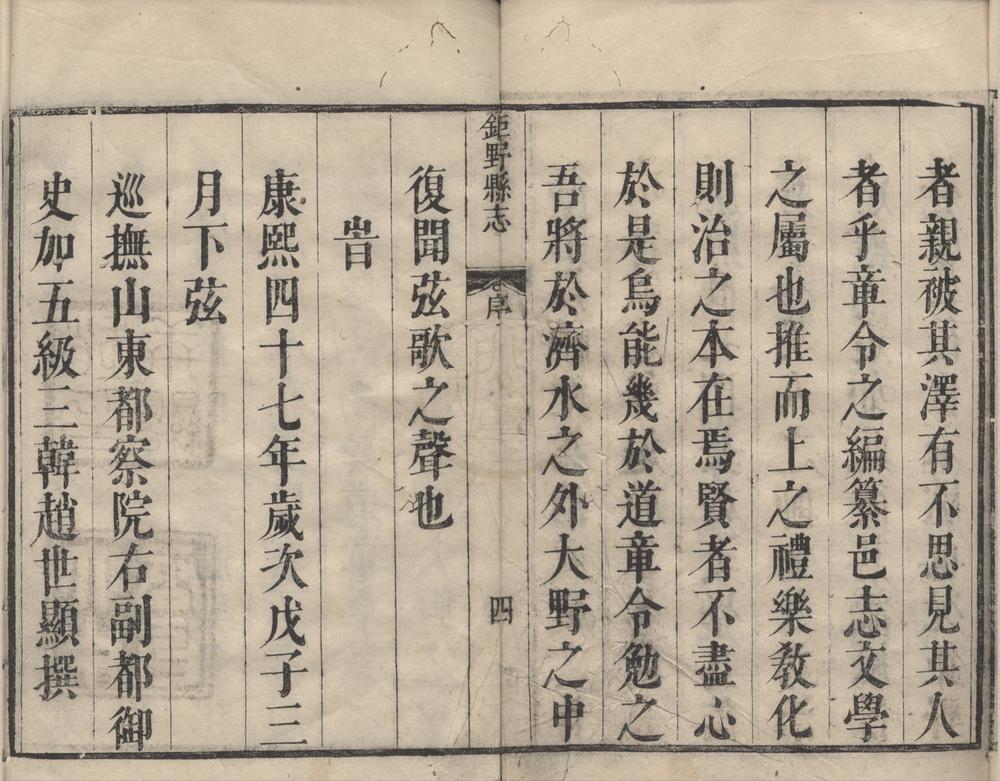 者親被其澤有不思見其人
者乎章令之編纂邑志文學
之屬也推而上之禮樂敎化
則治之本在焉賢者不盡心
於是烏能幾於道章令勉之
吾將於濟水之外大野之中
鉅野縣志
序
四
復聞弦歌之聲也
旹
康熙四十七年歲次戊子三
月下弦
巡撫山東都察院右副都御
史加五級三韓趙世顯撰